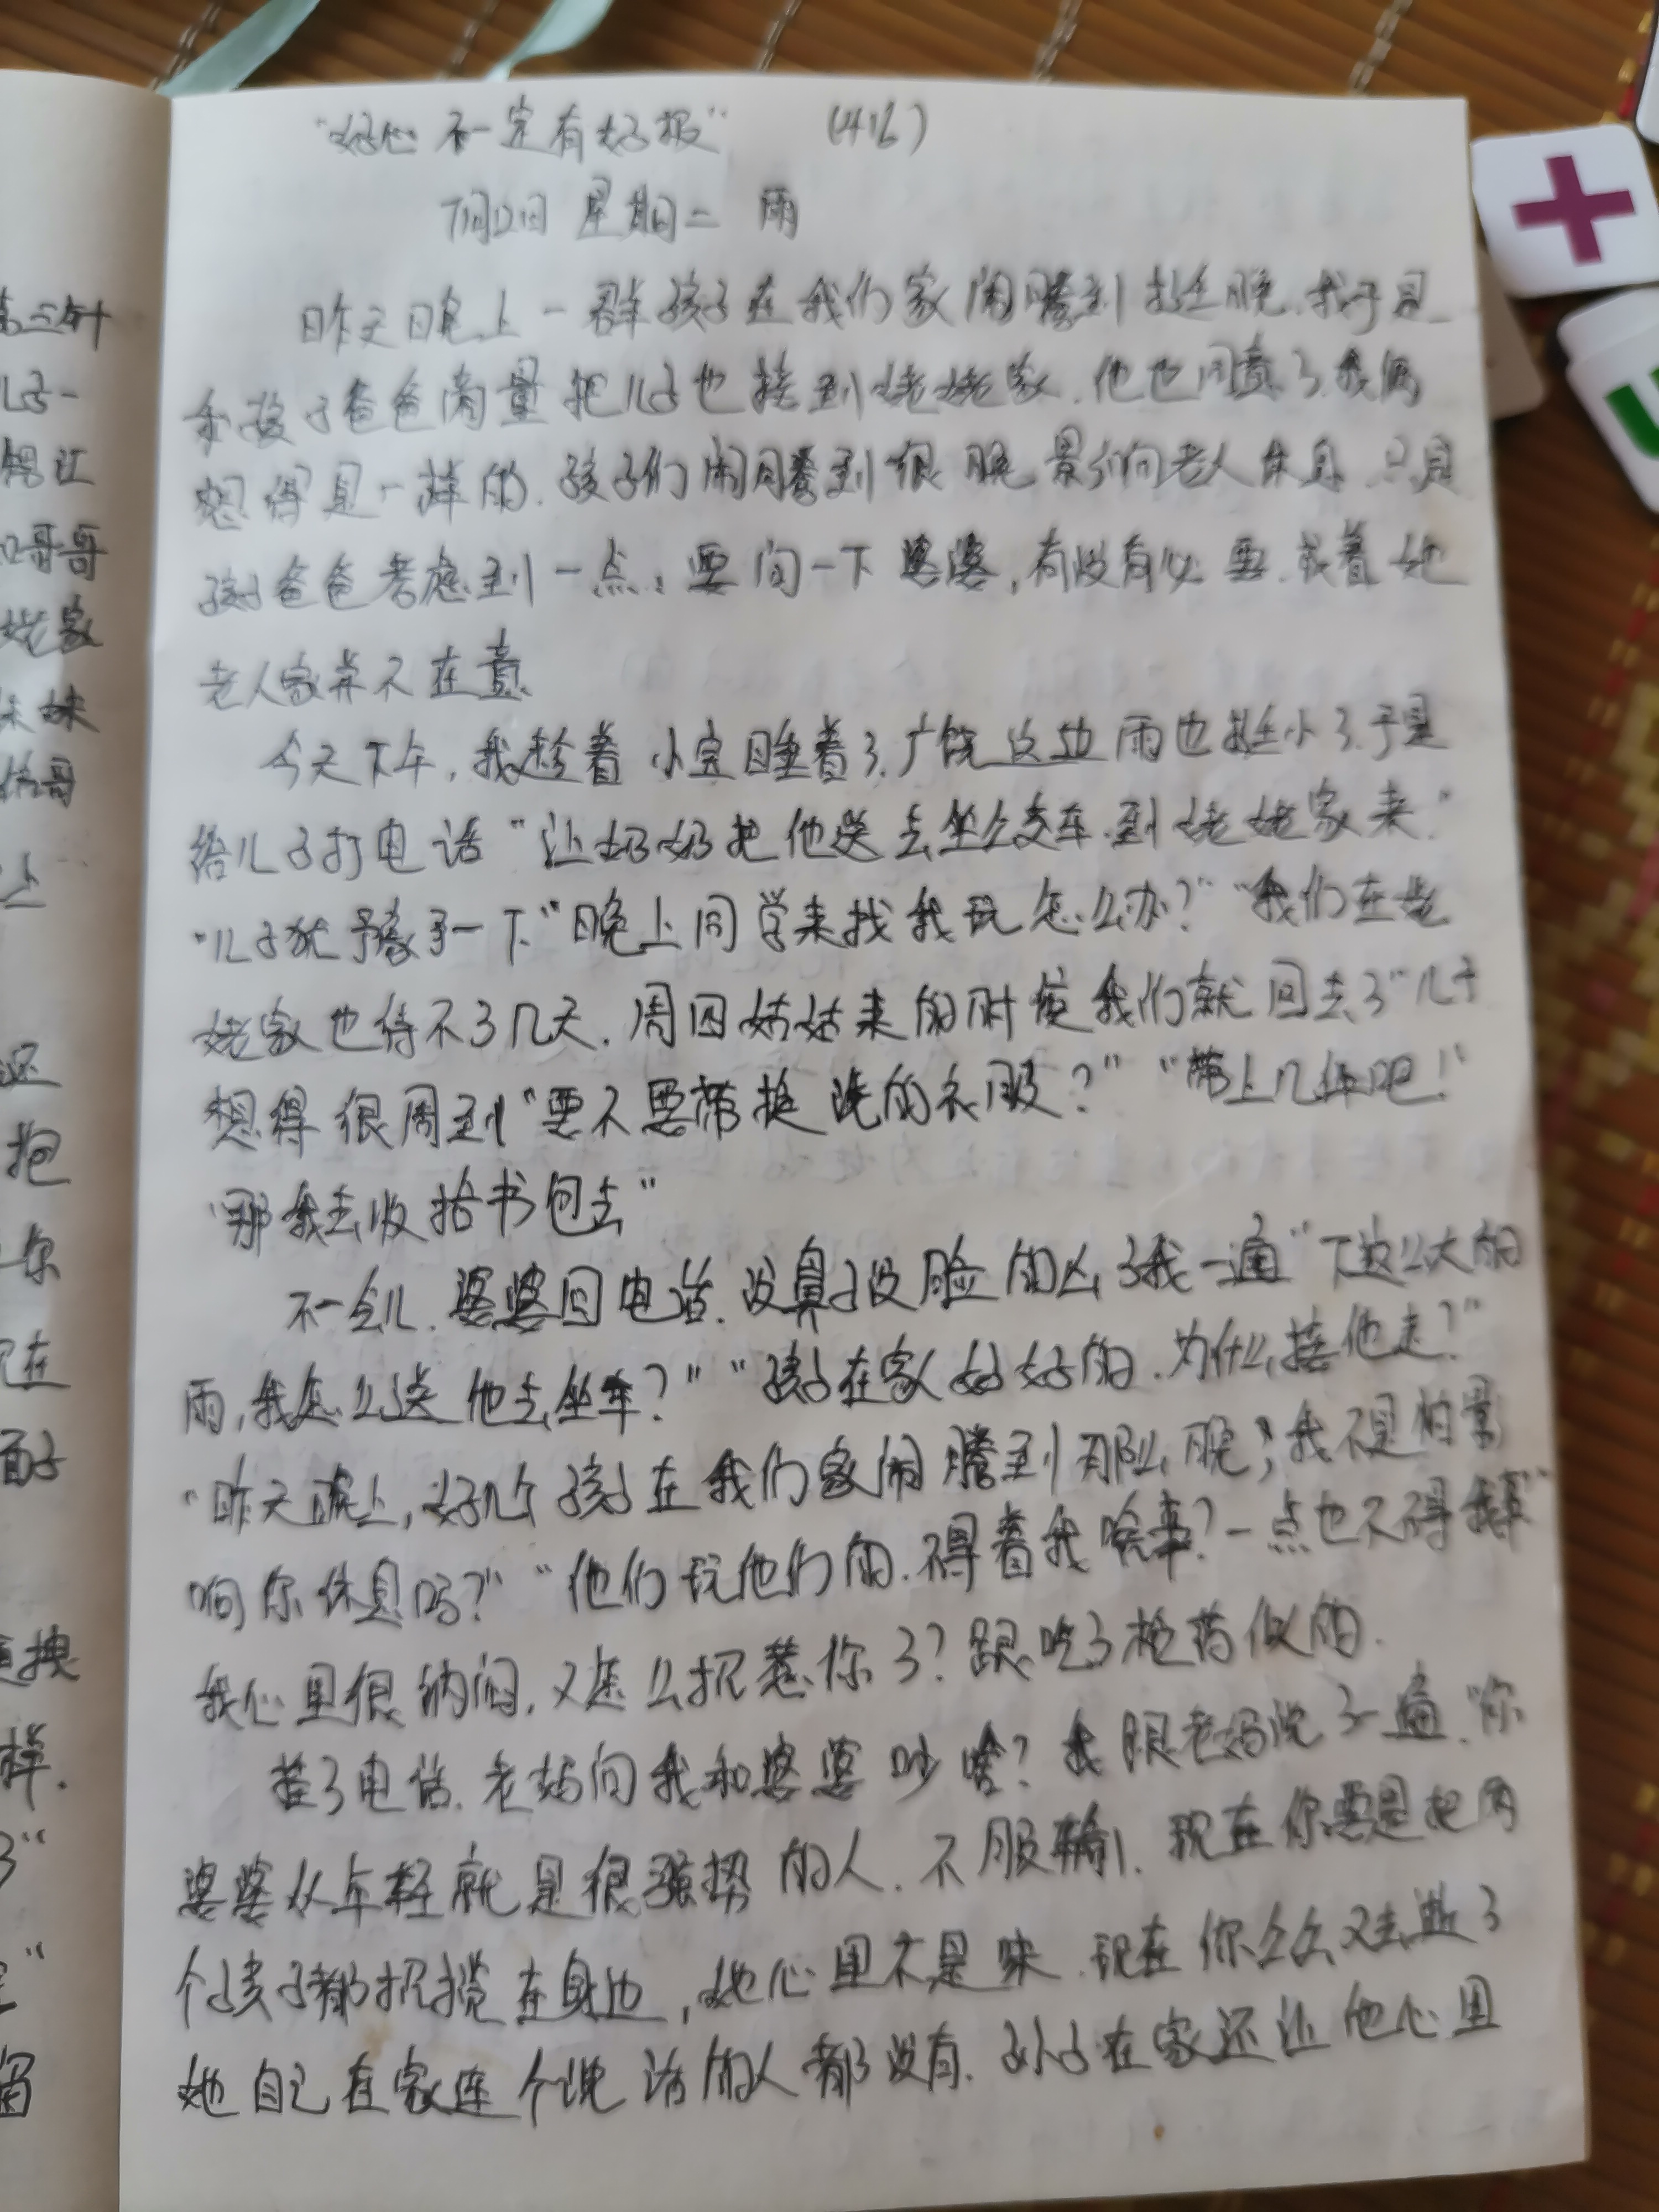 "好心不一定有好报" (416)
7月12日 星期二 雨
昨天晚上一群孩子在我们家闹腾到挺晚.我于是
和孩子爸爸商量把儿子也接到姥姥家.他也同意了.我俩
想得是一样的.孩子们闹腾到很晚影响老人休息.只是
孩子爸爸考虑到一点:要问一下婆婆,有没有必要.我看她
老人家并不在意.
今天下午,我趁着小宝睡着了.广饶这边雨也挺小了.于是
给儿子打电话"让奶奶把他送去坐公交车.到姥姥家来."
"儿子犹豫了一下"晚上同学来找我玩怎么办?""我们在姥
姥家也待不了几天.周四姑姑来的时候我们就回去了"儿子
想得很周到"要不要带换洗的衣服?""带上几件吧!"
"那我去收拾书包去"
不一会儿.婆婆回电话.没鼻子没脸的凶了我一通"下这么大的
雨,我怎么送他去坐车?""孩子在家好好的.为什么接他走?"
"昨天晚上,好几个孩子在我们家闹腾到那么晚,我不是怕影
响你休息吗?""他们玩他们的.碍着我啥事?一点也不碍我事"
我心里很纳闷.又怎么招惹你了?跟吃了枪药似的.
挂了电话.老妈问我和婆婆吵啥?我跟老妈说了一遍."你
婆婆从年轻就是很强势的人.不服输.现在你要是把两
个孩子都招揽在身边,她心里不是味.现在你公公又去世了
她自己在家连个说话的人都没有.孙子在家还让他心里